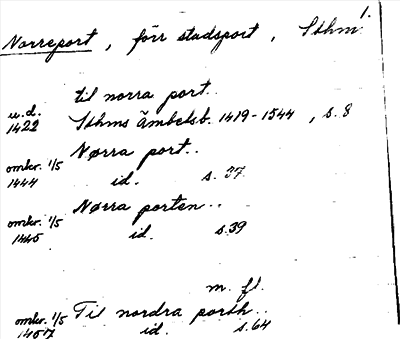 1.
Norreport, förr stadsport, Sthm.
til norra port..
u.d.
1422 Sthms Ämbetsb. 1419-1544, s. 8
Nørra port..
omkr. 1/5
1444 id. s. 37.
Nørra porten..
omkr. 1/5
1445 id. s.39
m. fl.
Til nordra porth..
omkr. 1/5
1457 id. s.64